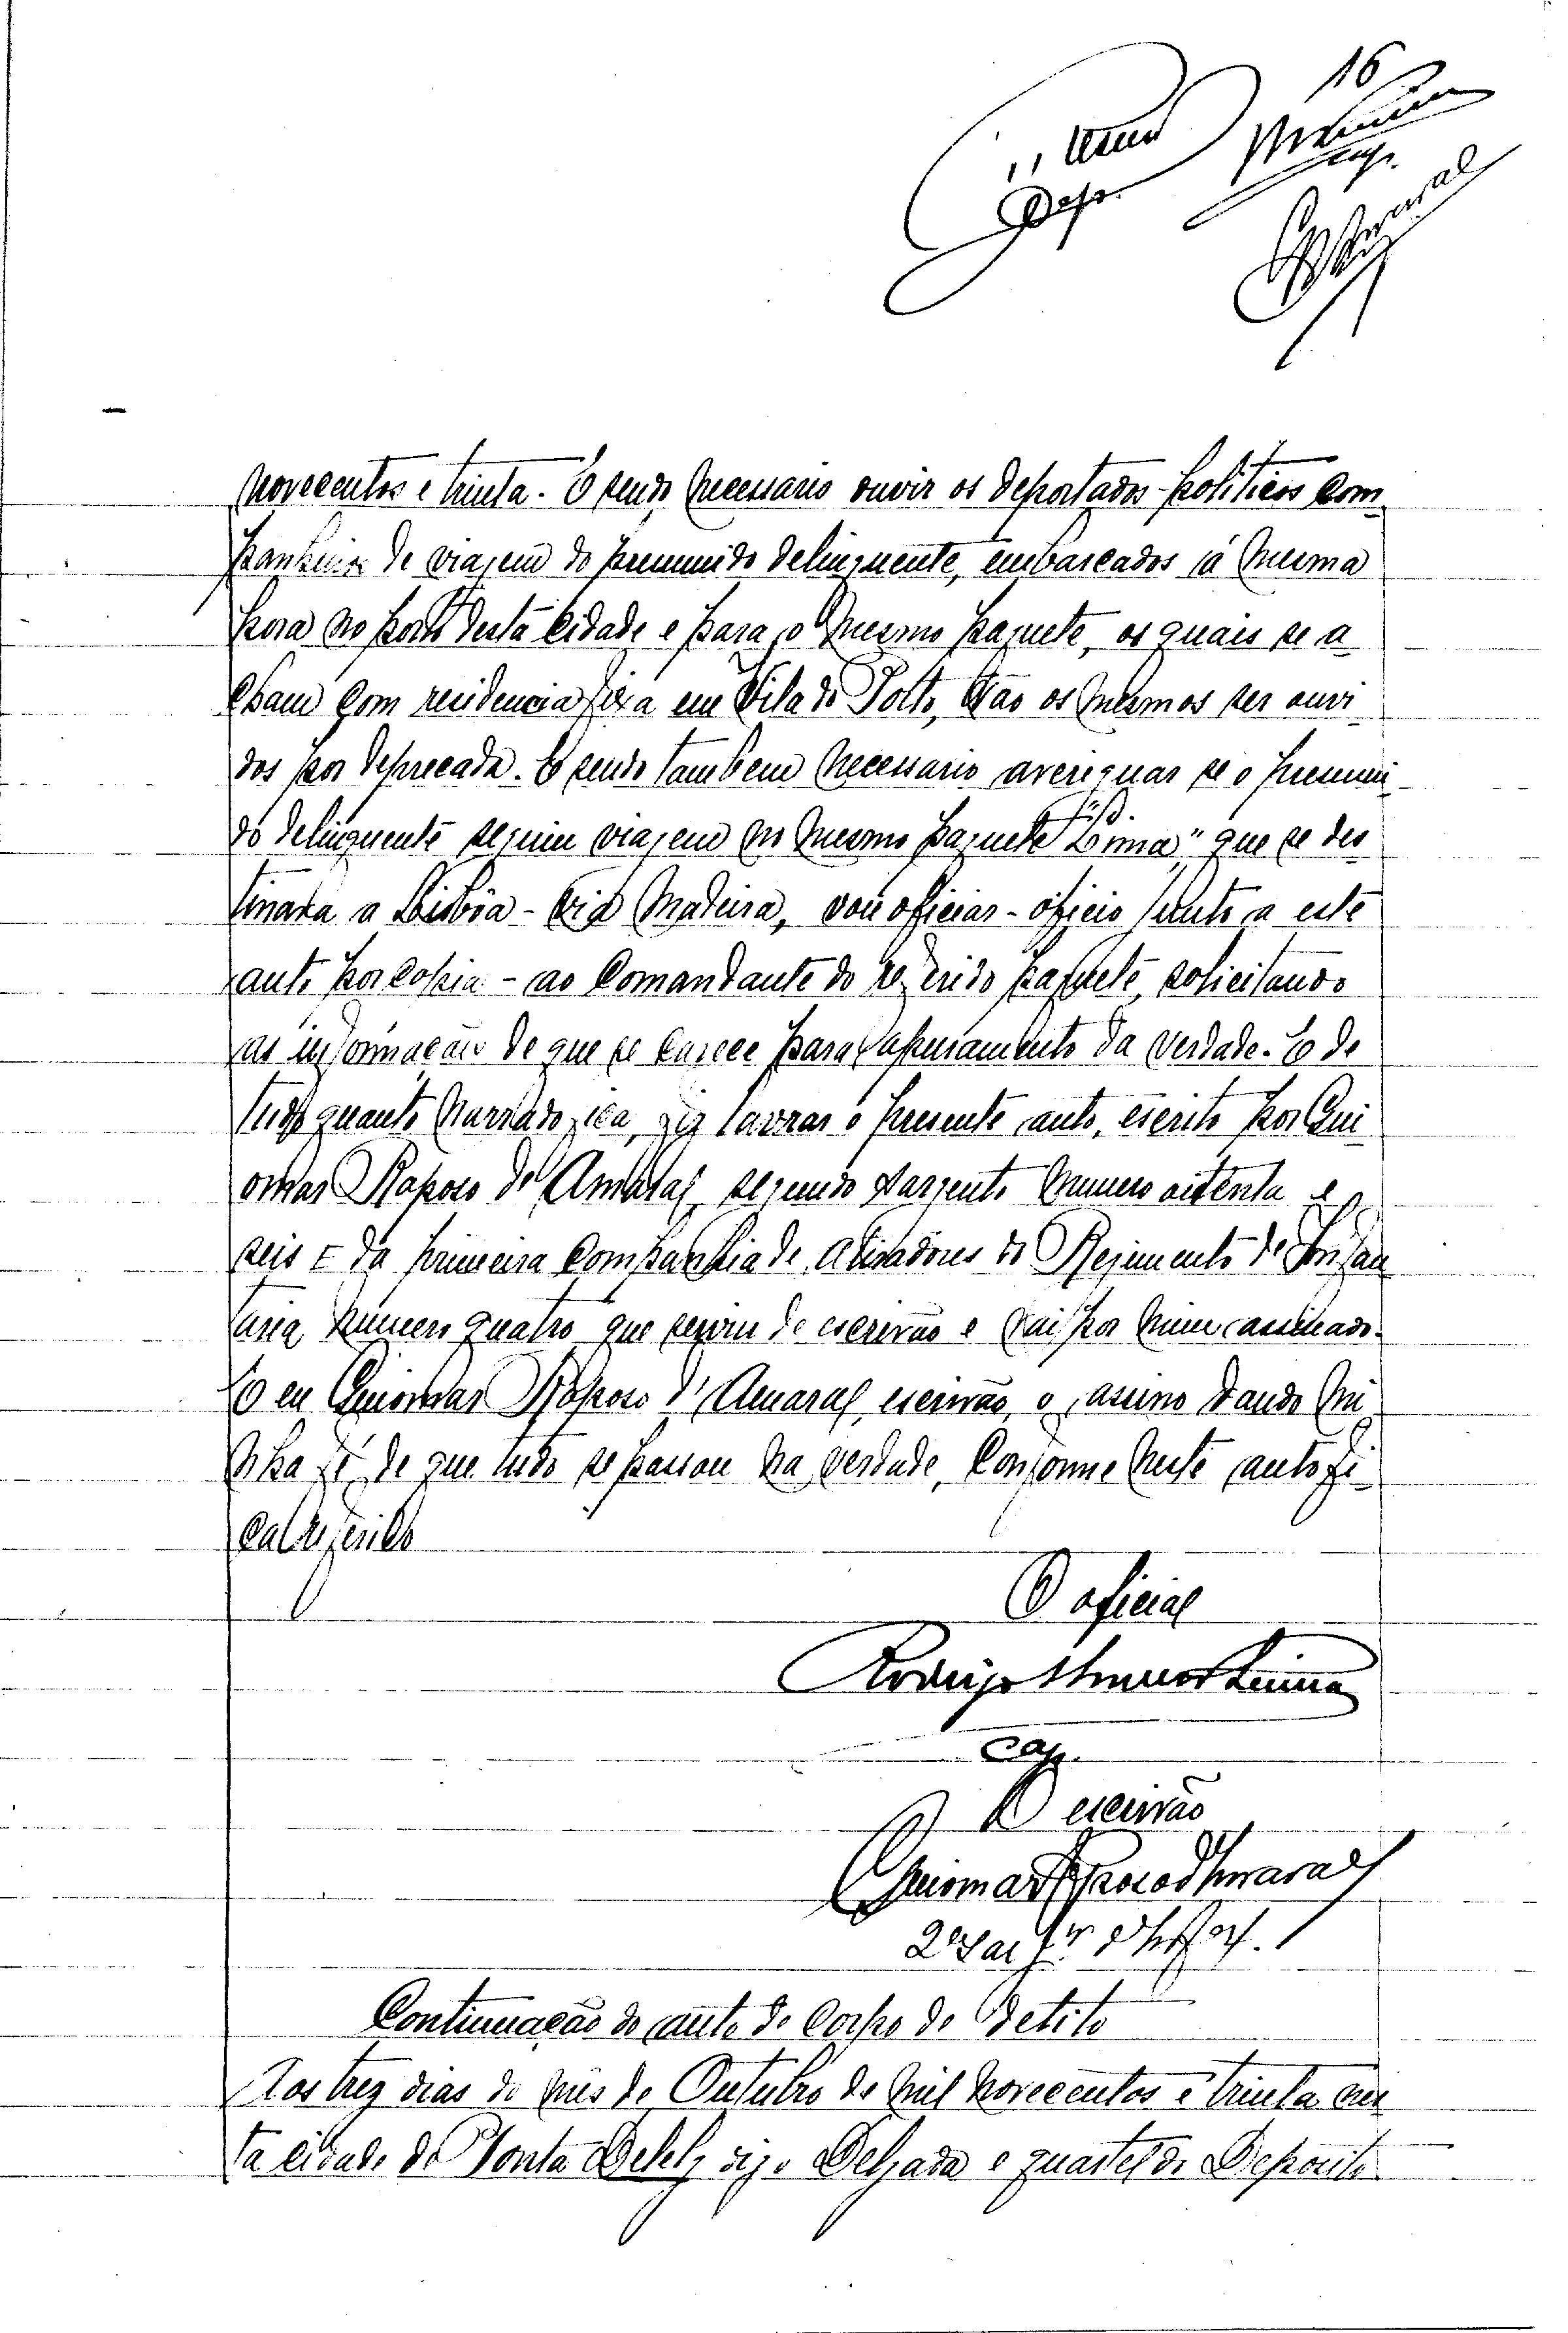 16
novecentos e trinta. E sendo necessario ouvir os deportados politicos com
panheiros de viagem do presumido delinquente, embarcados á mesma
hora no porto desta cidade e para o mesmo paquete, os quais se a
cham com residencia fixa em Vila do Porto, vão os mesmos ser ouvi
dos por deprecada. E sendo tambem necessario averiguar se o presumi
do delinquente seguiu viagem no mesmo paquete "Lima" que se des
tinava a Lisbôa - via Madeira, vou oficiar - oficio junto a este
auto por copia - ao Comandante do referido paquete, solicitando
as informações de que se carece para apuramento da verdade. E de
tudo quanto narrado fica, fiz lavrar o presente auto, escrito por Gui
omar Raposo de Amaral, segundo sargento numero oitenta e
seis E da primeira Companhia de Atiradores do Regimento de Infan
taria numero quatro que serviu de escrivão e vai por mim assinado.
E eu Guiomar Raposo d'Amaral, escrivão, o assino dando mi
nha fé de que tudo se passou na verdade, conforme neste auto fi
ca referido
O oficial
Rodrigo
cap.
O escrivão
Guiomar Raposo d'Amaral
Continuação do auto de corpo de delito
Aos trez dias do mês de Outubro de mil novecentos e trinta nes
ta cidade de Ponta Delelg digo Delgada e quartel do Deposito